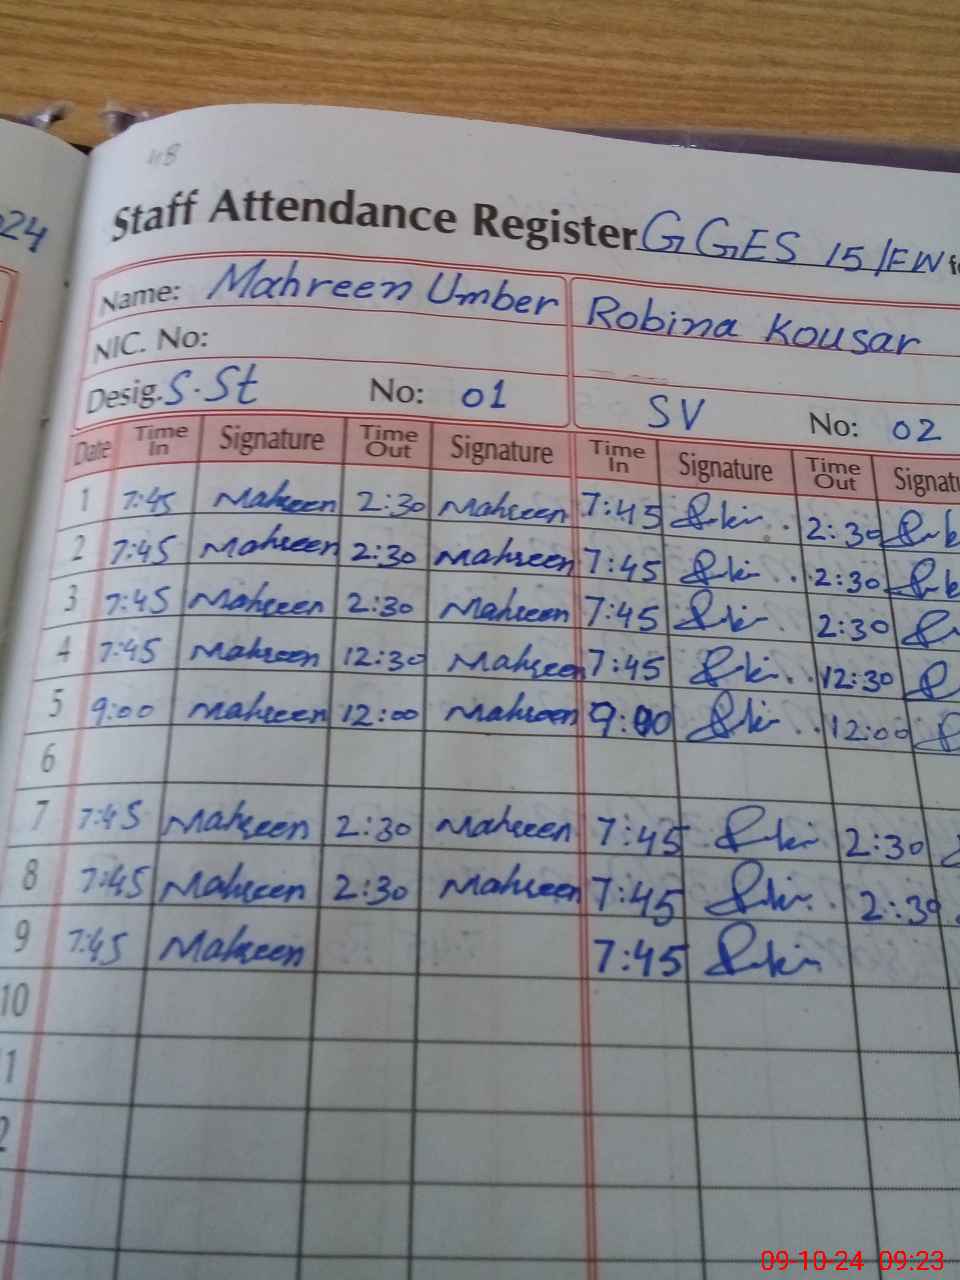 118
024
Staff Attendance Register GGES 15/EW
Name: Mahreen Umber Robina Kousar
NIC. No:
Desig. S.St No: 01 SV No: 02
Date Time In Signature Time Out Signature Time In Signature Time Out Signatu
1 7:45 Mahreen 2:30 Mahreen 7:45 2:30
2 7:45 Mahreen 2:30 Mahreen 7:45 2:30
3 7:45 Mahreen 2:30 Mahreen 7:45 2:30
4 7:45 Mahreen 12:30 Mahreen 7:45 12:30
5 9:00 Mahreen 12:00 Mahreen 9:00 12:00
6
7 7:45 Mahreen 2:30 Mahreen 7:45 2:30
8 7:45 Mahreen 2:30 Mahreen 7:45 2:30
9 7:45 Mahreen 7:45
10
1
2
09-10-24 09:23